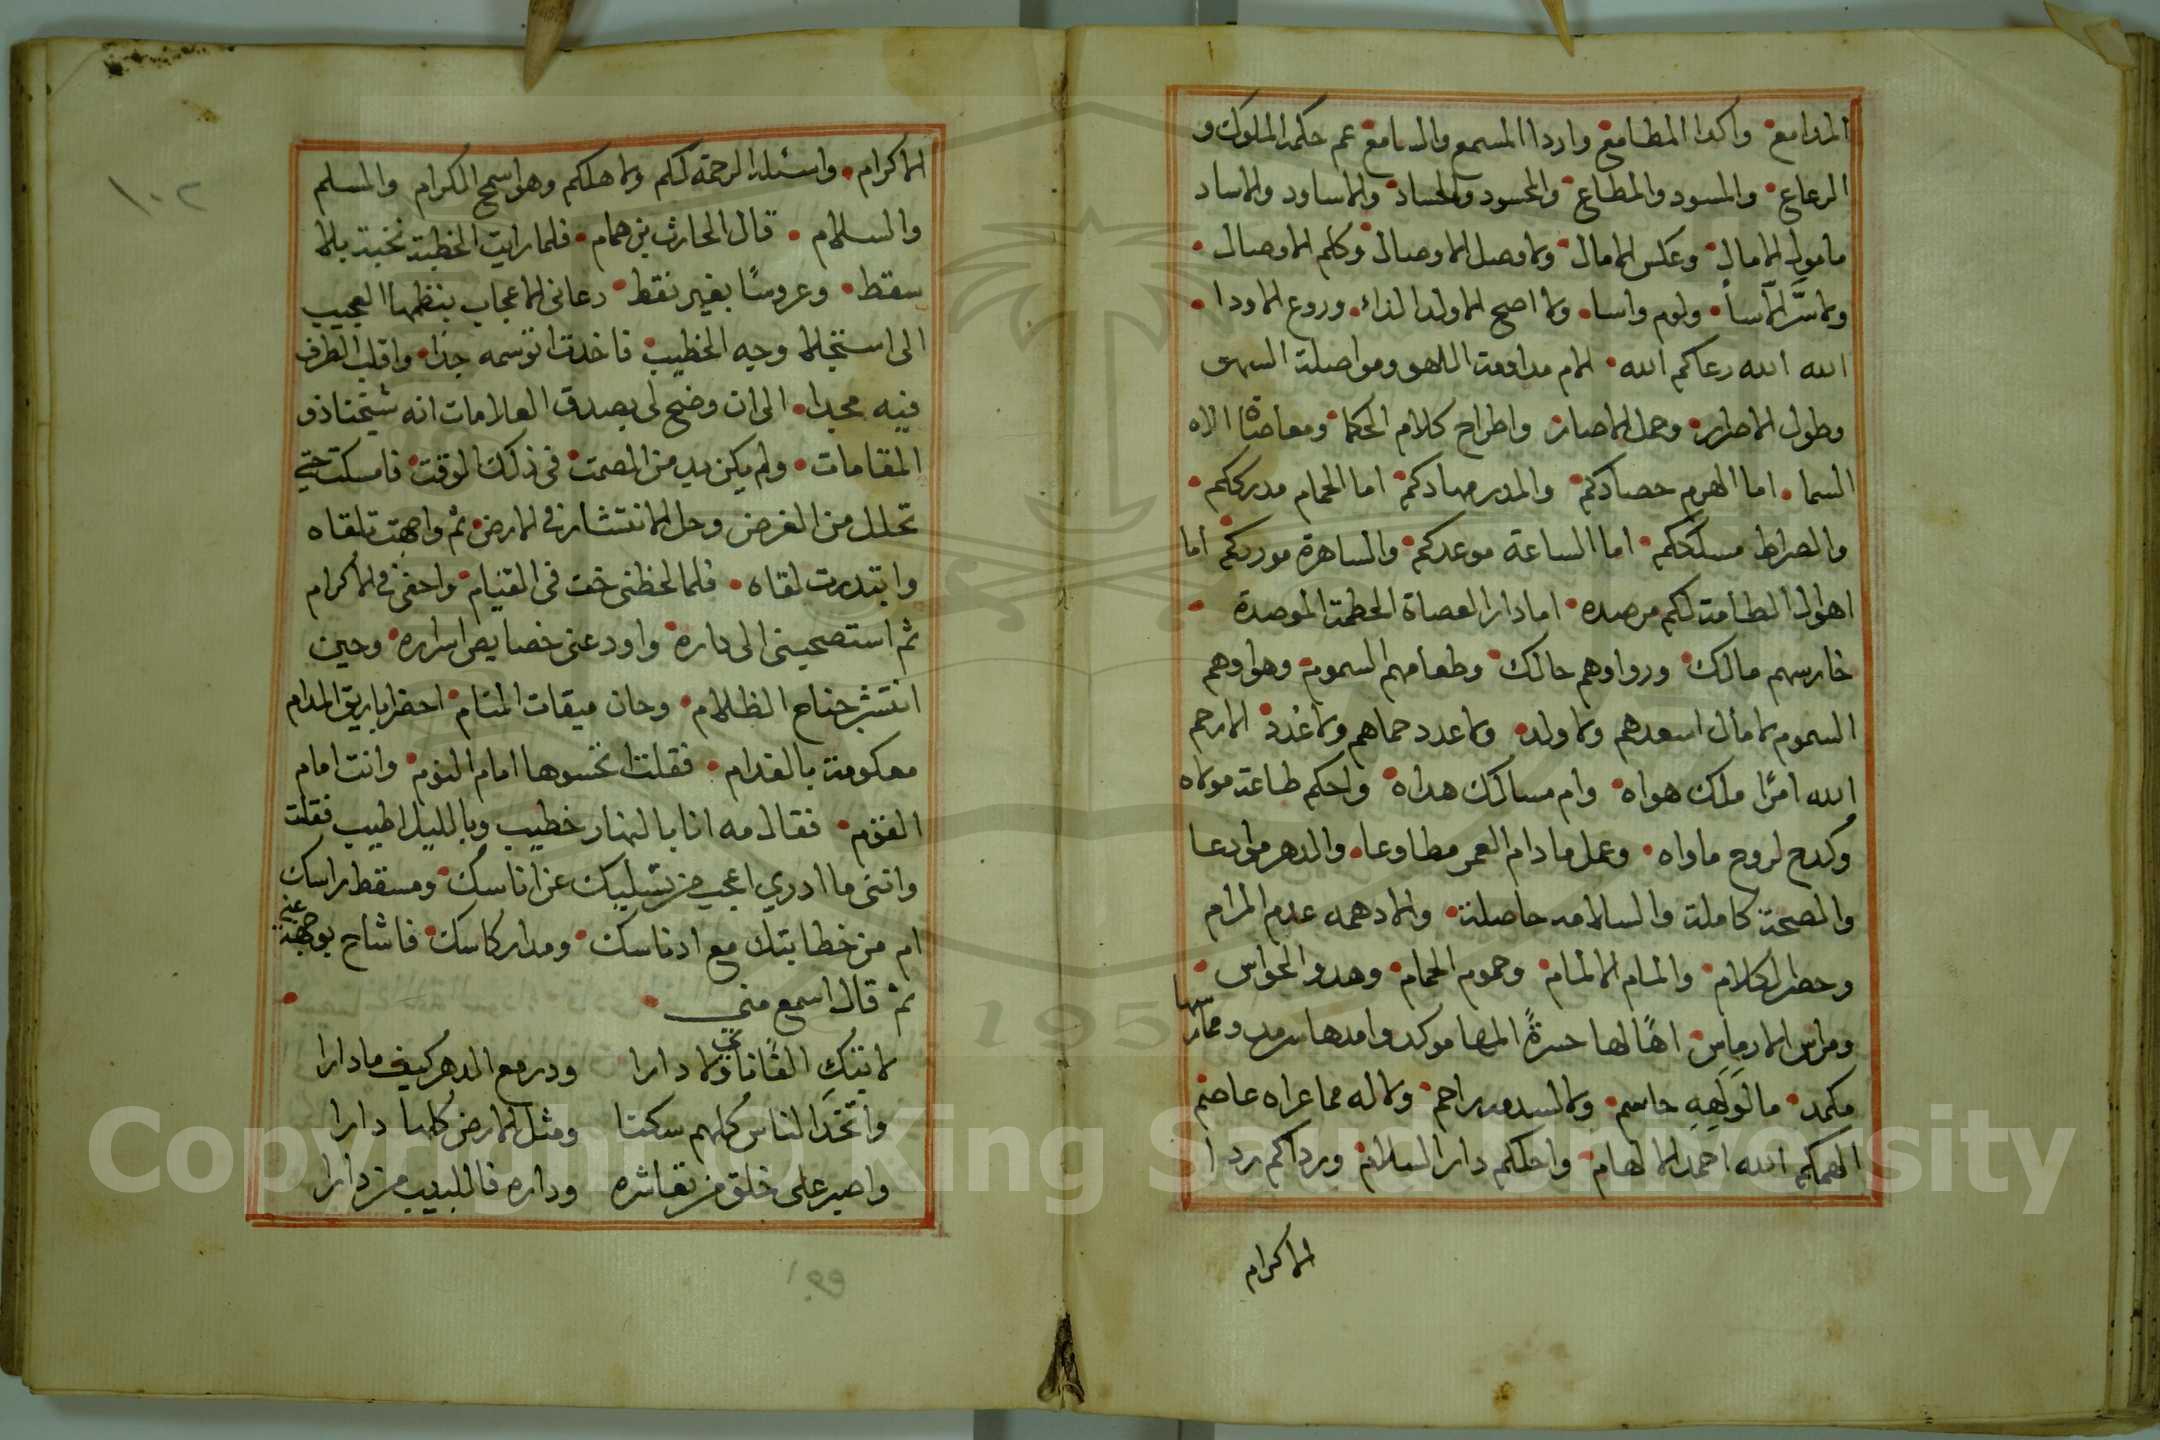 المدامع واكدا المطامع واردا المسمع والسامع عم حكمه الملوك و
الرعاع والمسود والمطاع والمحسود والحساد والاساود والاساد
ما مول الامال وعكس الامال وما وصل الا وصال وكلم الاوصال
وما سَرَّ الاسآ ولوم واسا ولا اصح الا ولد الداء وروع الاودا
الله الله رعاكم الله الام مداومة اللهو ومواصلة السهو
وطول الاصرار وحمل الاصار واطراح كلام الحكما ومعاصاة الاه
السما اما الهرم حصادكم والمدر مهادكم اما الحمام مدرككم
والصراط مسلككم اما الساعة موعدكم والساهرة موردكم اما
اهوال الطامة لكم مرصده اما دار العصاة الحطمة الموصدة
خارسهم مالك ورواوهم حالك وطعامهم السموم وهواوهم
السموم لا مال اسعدهم ولا ولد ولا عدد حماهم ولا عُدد الا رحم
الله امرًا ملك هواه وام مسالك هداه واحكم طاعة مولاه
وكدح لروح ماواه وعمل ما دام العمر مطاوعا والدهر موادعا
والصحة كاملة والسلامه حاصلة والا دهمه عدم المرام
وحصر الكلام والمام الالمام وحموم الحمام وهدو الحواس
ومراس الارماس اهًا لها حسرةً المها موكد وامدها سرمد وممارسها
مكمد ما لولهه حاسم ولا لسدمه راحم ولا له مما عراه عاصم
الهمكم الله احمد الالهام واحلكم دار السلام ورداكم ردا
الاكرام
١٠٢
الاكرام واسئله الرحمة لكم ولاهلكم وهو اسمح الكرام والمسلم
والسلام قال الحارث بن همام فلما رايت الخطبة نخبة بلا
سقط وعروسًا بغير نقط دعاني الاعجاب بنظمها العجيب
الى استجلا وجه الخطيب فاخذت اتوسمه جدا واقلب الطرف
فيه مجدا الى ان وضح لي بصدق العلامات انه شيخنا ذو
المقامات ولم يكن بد من الصمت في ذلك الوقت فامسكت حتى
تحلل من الفرض وحل الانتشار في الارض ثم واجهت تلقاه
وابتدرت لقاه فلما لحظني خف في القيام واحفى في الاكرام
ثم استصحبني الى داره واودعني خصايص اسراره وحين
انتشر جناح الظلام وحان ميقات المنام احضر اباريق المدام
معكومة بالفدام فقلت اتحسوها امام النوم وانت امام
القوم فقال مه انا بالنهار خطيب وبالليل اطيب فقلت
والله ما ادري اعجب من تسليك عن اناسك ومسقط راسك
ام من خطابتك مع ادناسك ومدار كاسك فاشاح بوجهه عني
ثم قال اسمع مني
لا تبك الفًا ناى ولا دارا ودر مع الدهر كيف ما دارا
واتخذ الناس كلهم سكنا ومثل الارض كلها دارا
واصبر على خلق من تعاشره وداره فاللبيب من دارا
Copyright © King Saud University
195